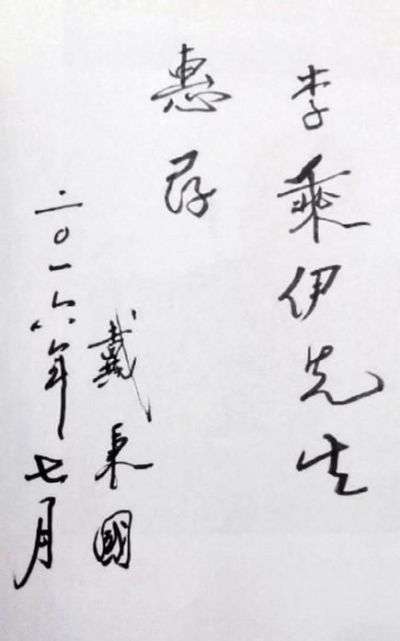 李乘伊先生
惠存
戴東國
二〇一六年七月